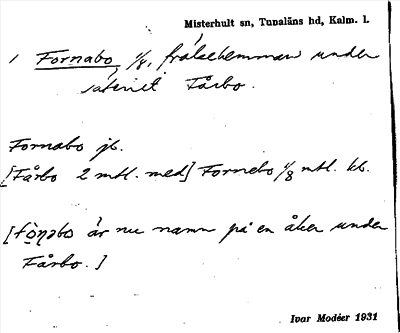 Misterhult sn, Tunaläns hd, Kalm. l.
1 Fornabo 1/8, frälsehemman under
säteriet Fårbo.
Fornabo jb.
[Fårbo 2 mtl. med] Fornebo 1/8 mtl. kb.
[fò̱ṇəbo är nu namn på en åker under
Fårbo.]
Ivar Modéer 1931